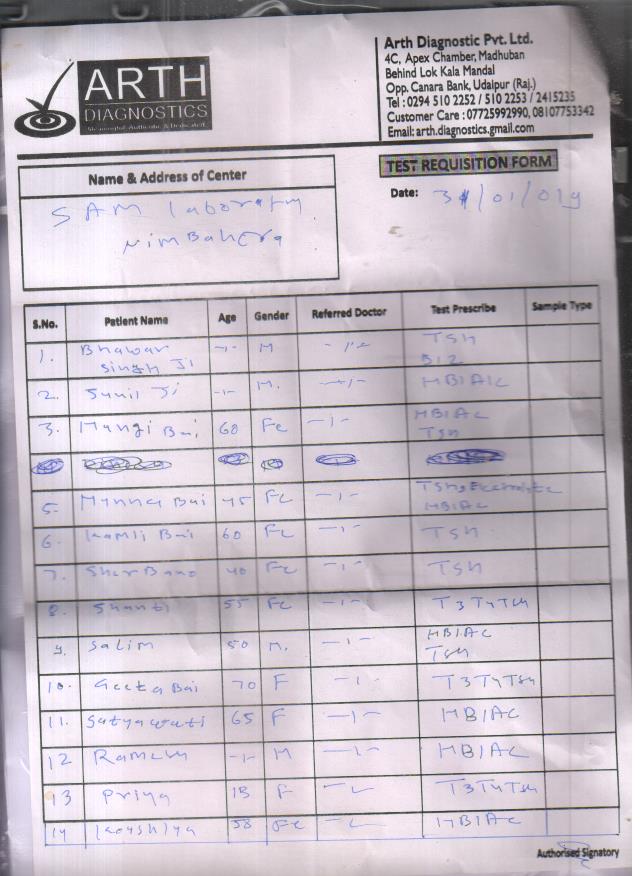 ARTH
DIAGNOSTICS
Meaningful, Authentic & Dedicated
Arth Diagnostic Pvt. Ltd.
4C, Apex Chamber, Madhuban
Behind Lok Kala Mandal
Opp. Canara Bank, Udaipur (Raj.)
Tel : 0294 510 2252 / 510 2253 / 2415235
Customer Care : 07725992990, 08107753342
Email: arth.diagnostics.gmail.com
TEST REQUISITION FORM
Name & Address of Center
Date: 31/01/019
SAM laboratry
NimBahera
S.No. Patient Name Age Gender Referred Doctor Test Prescribe Sample Type
1. Bhawar Singh Ji -1- M TSH
B12
2. Sunil Ji -1- M. -1- HBIAIC
3. Mangi Bai 60 Fe -1- HBIAC
TSH
5. Munna Bai 45 Fe -1- TSH
HBIAC
6. Kamli Bai 60 Fe -1- TSH
7. Sher Bano 40 Fe -1- TSH
8. Shanti 55 Fe -1- T3T4TSH
9. Salim 50 M. -1- HBIAC
TSH
10. Geeta Bai 70 F -1- T3T4TSH
11. Satyawati 65 F -1- HBIAC
12 Ramesh -1- M -1- HBIAC
13 Priya 18 F T3T4TSH
14 Koushlya 58 Fe HBIAC
Authorised Signatory